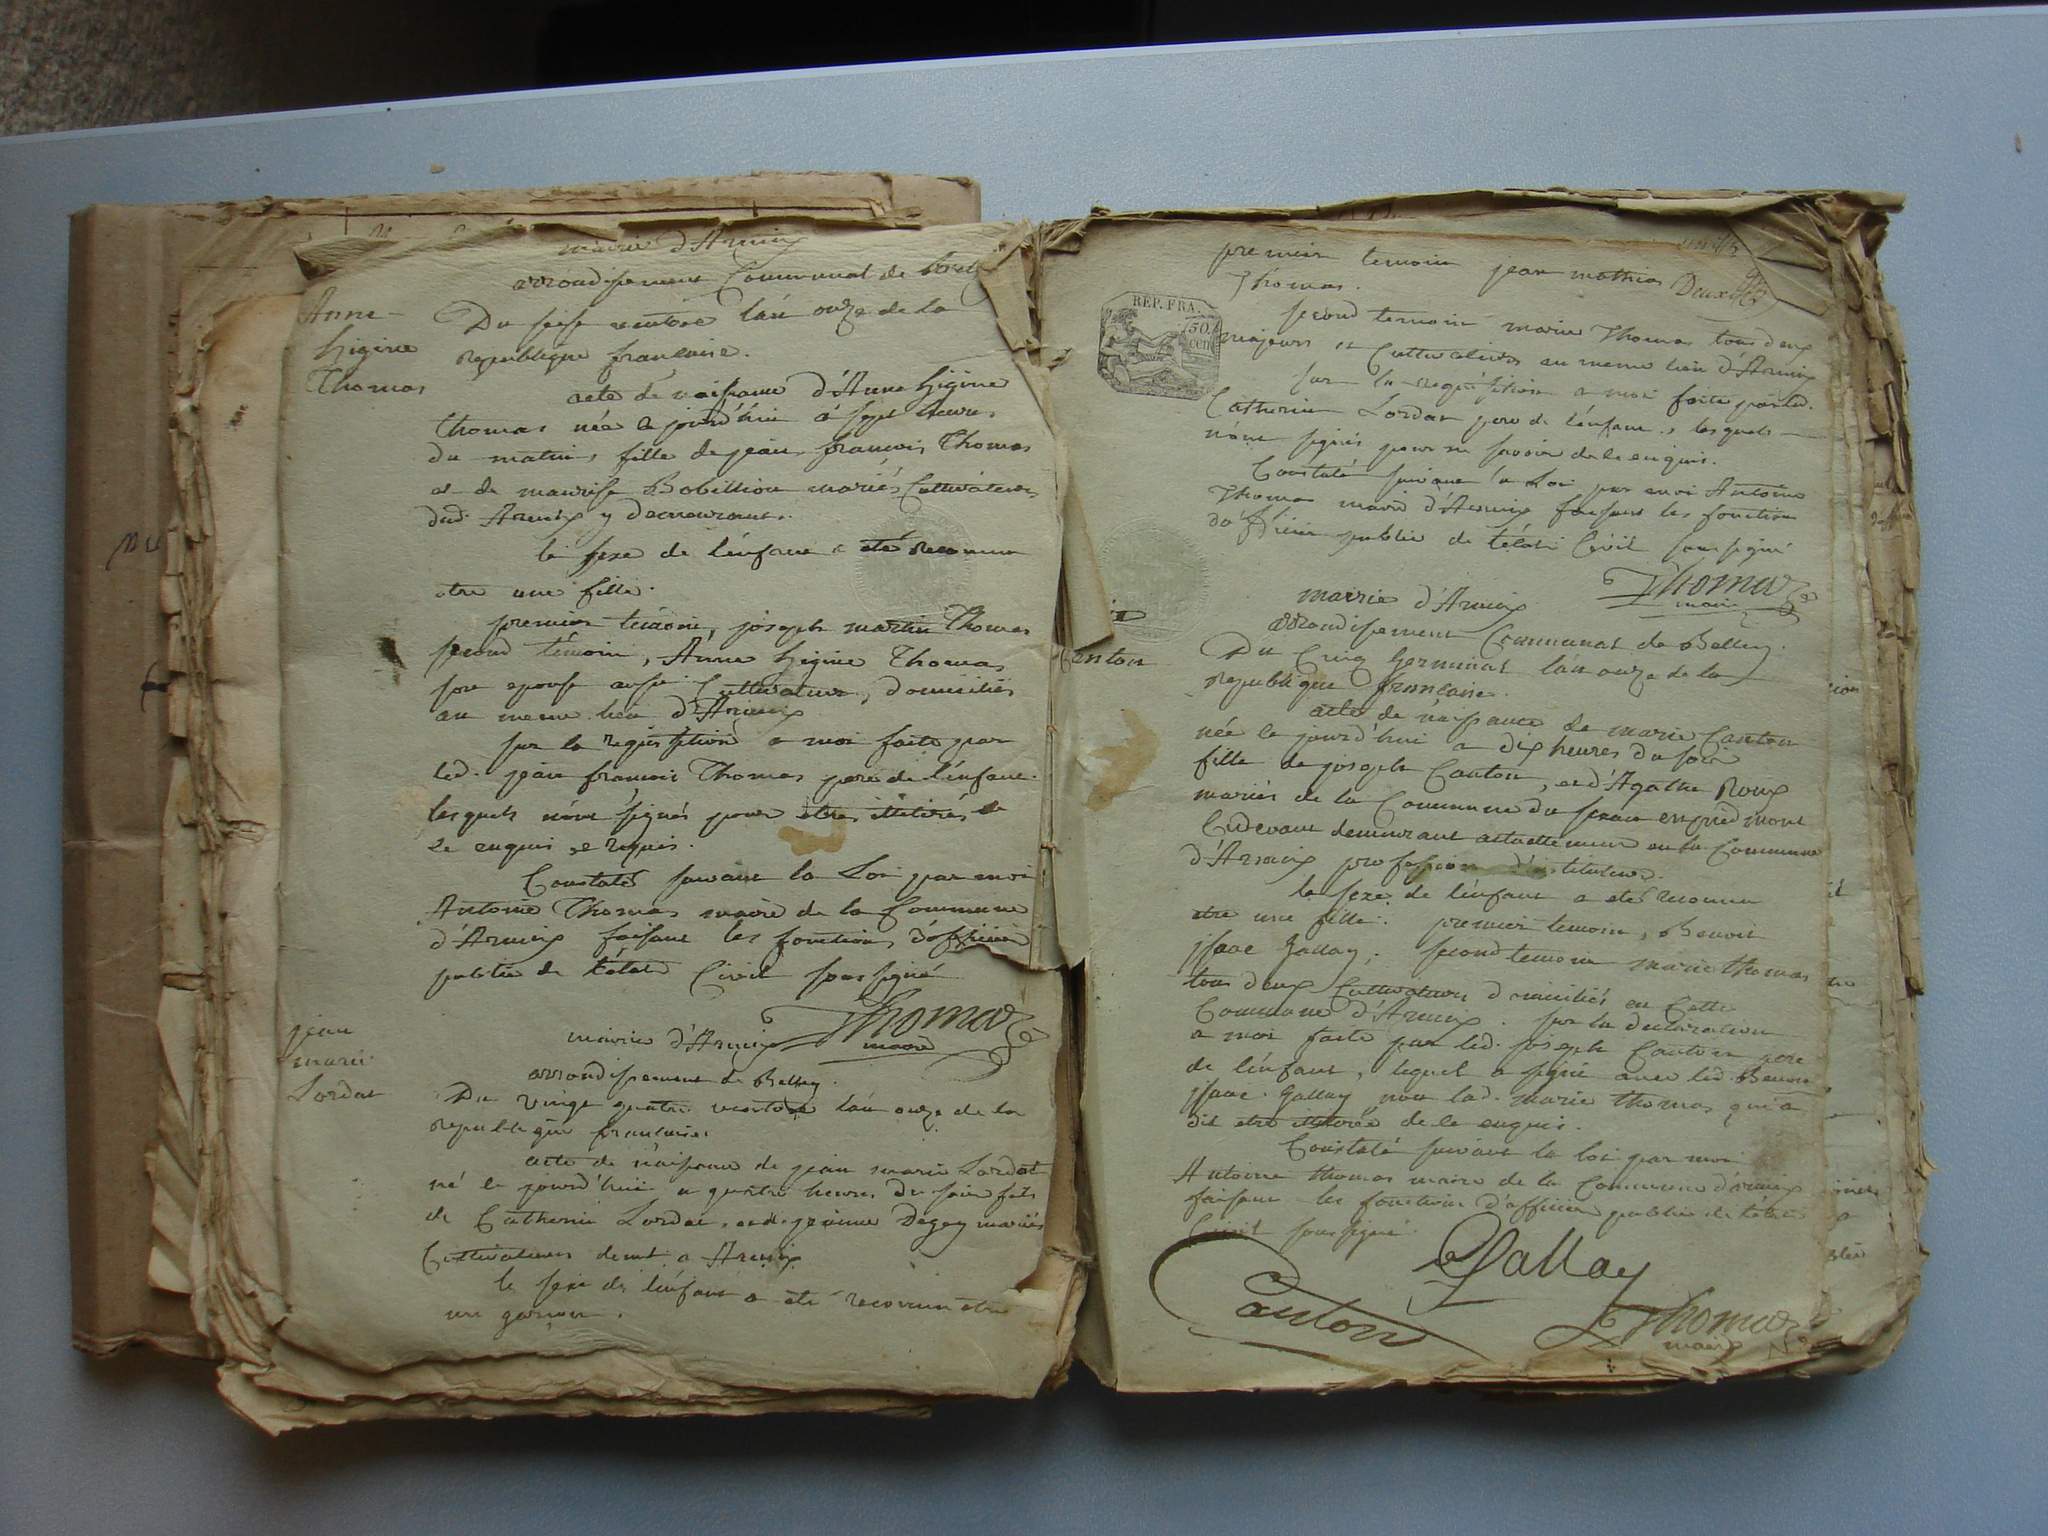 mairie d'Armix
arrondissement Communal de Belley
Anne
higine
Thomas
Du seise ventose l'an onze de la
republique francaise.
acte de naissance d'Anne higine
thomas née ce jourd'hui à sept heures
du matin, fille de jean francois Thomas
et de maurise Bobillion mariés Cultivateurs
dud. Armix y demeurant.
le sexe de l'enfant a été reconnu
etre une fille.
premier témoin, joseph martin Thomas
second témoin, Anne higine Thomas
son epouse aussi Cultivateurs, domiciliés
au meme lieu d'Armix
sur la requisition a moi faite par
led. jean francois Thomas pere de l'enfant
lesquels n'ont signés pour etre illitérés de
ce enquis et requis.
Constaté suivant la Loi par moi
Antoine Thomas maire de la Commune
d'Armix faisant les fonctions d'officier
public de l'état Civil soussigné
Thomas
maire
jean
marie
Lordat
mairie d'Armix
arrondissement de Belley.
Du vingt quatre ventose l'an onze de la
republique francaise.
acte de naissance de jean marie Lordat
né le jourd'hui a quatre heures du soir fils
de Catherin Lordat, et de jeanne Degey mariés
Cultivateurs demt. a Armix
le sexe de l'enfant a été reconnu etre
un garcon.
premier temoin jean mathias
Thomas.
Deux
REP. FRA.
50
cen
second temoin marie Thomas tous deux
majeurs et Cultivatives au meme lieu d'Armix
sur la requisition a moi faite par led.
Catherin Lordat pere de l'enfant, lesquels
n'ont signés pour ne savoir de ce enquis.
Constaté suivant la Loi par moi Antoine
Thomas maire d'Armix faisant les fonctions
d'officier public de l'état Civil soussigné
Thomas
maire
Canton
mairie d'Armix
arrondissement Communal de Belley.
Du Cinq Germinal l'an onze de la
republique francaise.
acte de naissance de marie Canton
née le jourd'hui a dix heures du soir
fille de joseph Canton, et d'Agathe Roux
mariés de la Commune du en piedmont
Cidevant demeurant actuellement en la Commune
d'Armix profession d'instituteur.
le sexe de l'enfant a eté reconnu
etre une fille. premier temoin, Benoit
jsaac Gallay, second temoin marie thomas
tous deux Cultivateurs domiciliés en Cette
Commune d'Armix. sur la declaration
a moi faite par led. joseph Canton pere
de l'enfant, lequel a signé avec led. Benoit
jsaac Gallay non lad. marie thomas qui a
dit etre illitérée de ce enquis.
Constaté suivant la loi par moi
Antoine thomas maire de la Commune d'Armix
faisant les fonctions d'officier public de l'état
Civil soussigné
Gallay
Canton
Thomas
maire